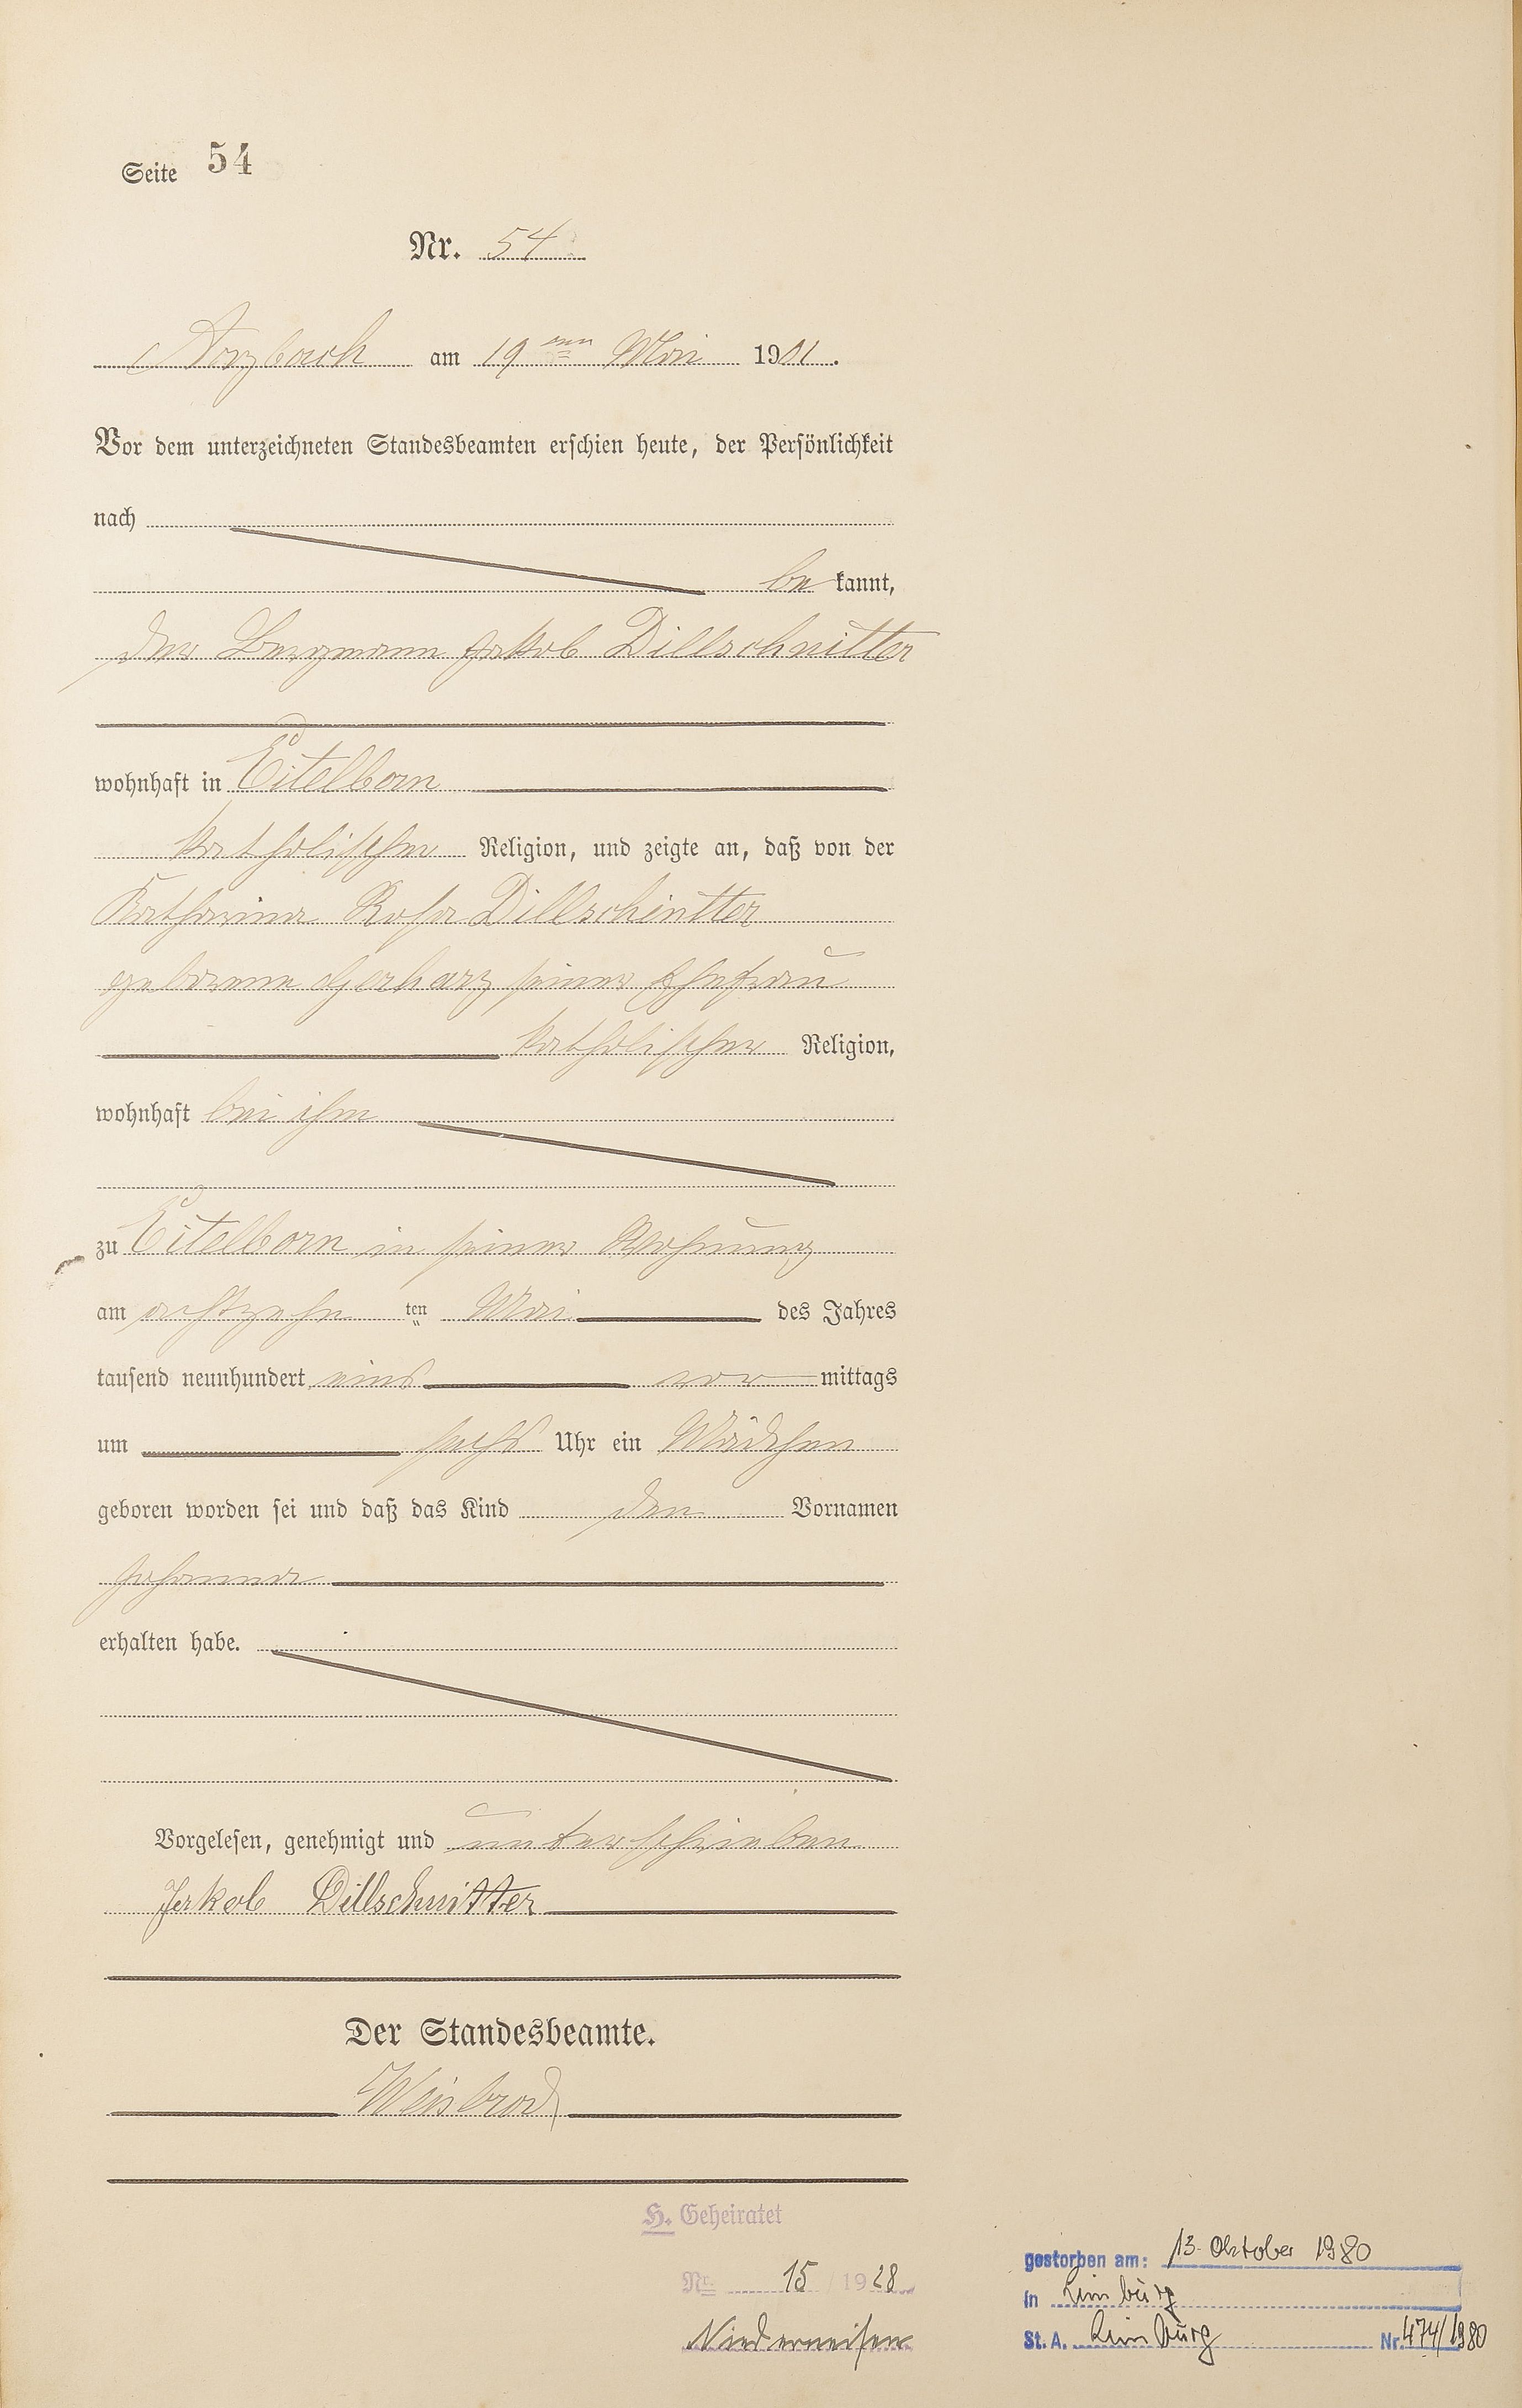 Seite 54
Nr. 54
Arzbach am 19ten Mai 1901.
Vor dem unterzeichneten Standesbeamten erschien heute, der Persönlichkeit
nach
be kannt,
der Bergmann Jakob Dillschnitter
wohnhaft in Eitelborn
katholischer Religion, und zeigte an, daß von der
Katharina Rosa Dillschintter
geborene Gerharz seiner Ehefrau
katholischer Religion,
wohnhaft bei ihm
zu Eitelborn in seiner Wohnung
am achtzehn ten Mai des Jahres
tausend neunhundert eins vor mittags
um sechs Uhr ein Mädchen
geboren worden sei und daß das Kind den Vornamen
Johanna
erhalten habe.
Vorgelesen, genehmigt und unterschrieben
Jakob Dillschnitter
Der Standesbeamte.
Weisbrod
H. Geheiratet
Nr. 15 / 1928
Niederneisen
gestorben am: 13. Oktober 1980
in Limburg
St. A. Limburg Nr. 474/1980